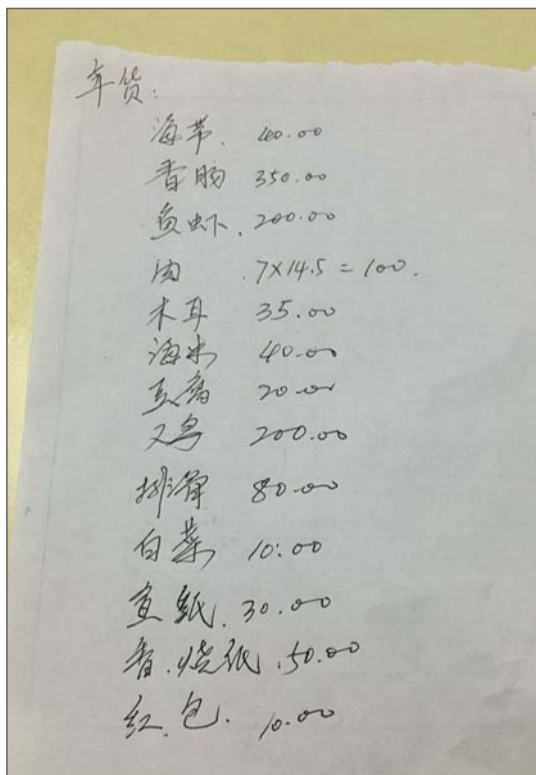 年货:
海带. 40.00
香肠 350.00
鱼虾. 200.00
肉 .7×14.5=100.
木耳 35.00
海米 40.00
豆腐 20.00
又鸟 200.00
排骨 80.00
白菜 10.00
纸. 30.00
香.烧纸.50.00
红包. 10.00